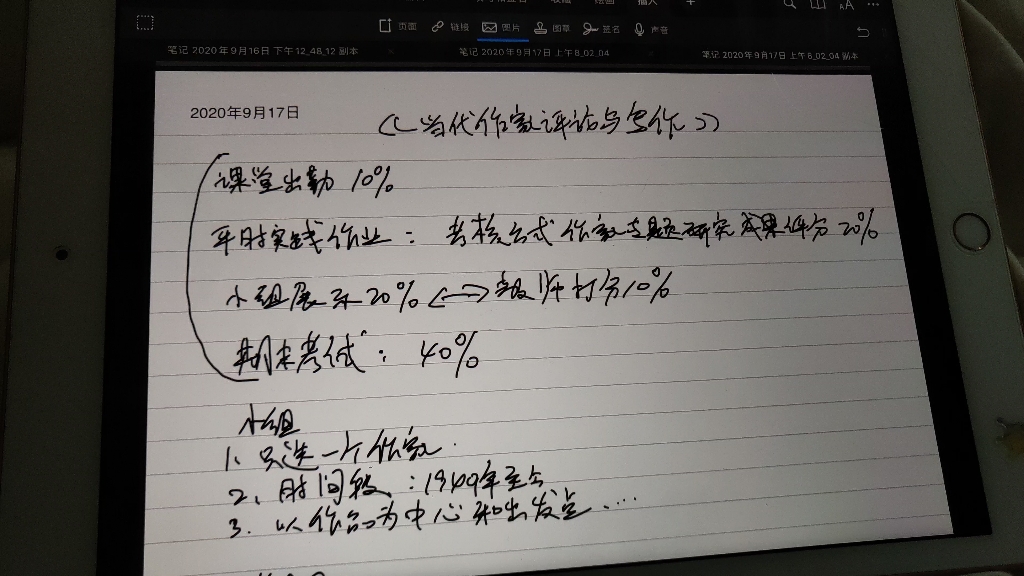 页面 链接 图片 图章 签名 声音
笔记 2020年9月16日 下午12_48_12 副本
笔记 2020年9月17日 上午8_02_04
笔记 2020年9月17日 上午8_02_04 副本
2020年9月17日
《当代作家评论与写作》
课堂出勤 10%
平时实践作业：考核方式 作家专题研究成果评分 20%
小组展示20% ↔ 打分10%
期末考试：40%
小组
1、只选一个作家.
2、时间段：1949年至今
3、以作品为中心和出发点……